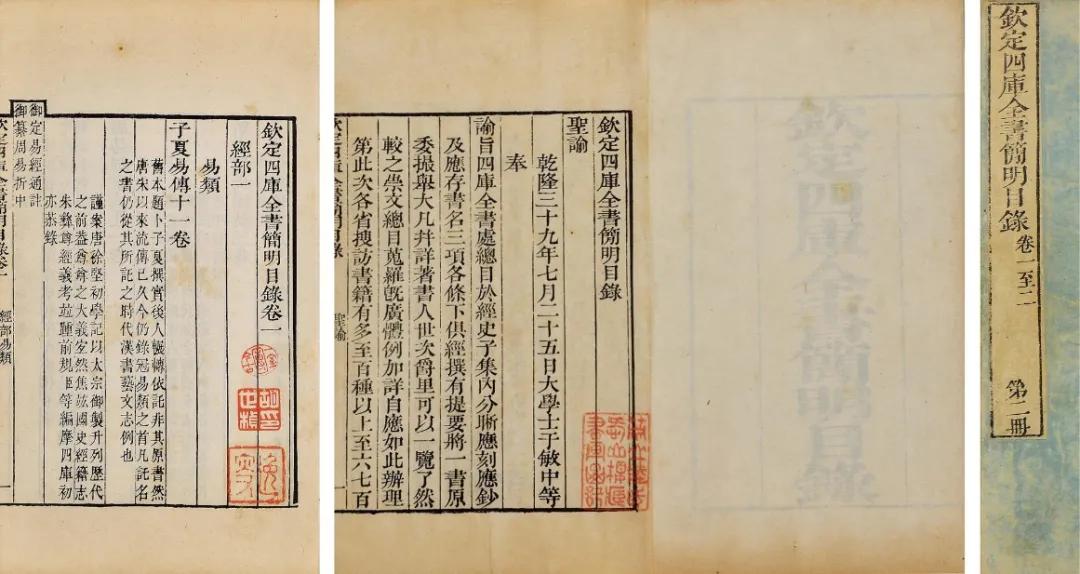 欽定四庫全書簡明目錄 卷一至二 第一冊
欽定四庫全書簡明目錄
欽定四庫全書簡明目錄
聖諭
乾隆三十九年七月二十五日大學士于敏中等
奉
諭旨四庫全書處總目於經史子集內分晰應刻應鈔
及應存書名三項各條下俱經撰有提要將一書原
委撮舉大凡并詳著書人世次爵里可以一覽了然
較之崇文總目蒐羅旣廣體例加詳自應如此辦理
第此次各省搜訪書籍有多至百種以上至六七百
欽定四庫全書簡明目錄 聖諭
欽定四庫全書簡明目錄卷一
經部一
易類
子夏易傳十一卷
舊本題卜子夏撰實後人輾轉依託非其原書然
唐宋以來流傳已久今仍錄冠易類之首凡託名
之書仍從其所託之時代漢書藝文志例也
謹案唐徐堅初學記以太宗御製升列歷代
之前蓋尊尊之大義焦竑國史經籍志
朱彝尊經義考竝踵前規臣等編摩四庫初
亦恭錄
御定易經通註
御纂周易折中
欽定四庫全書簡明目錄卷一 經部易類 一
胡印世楨